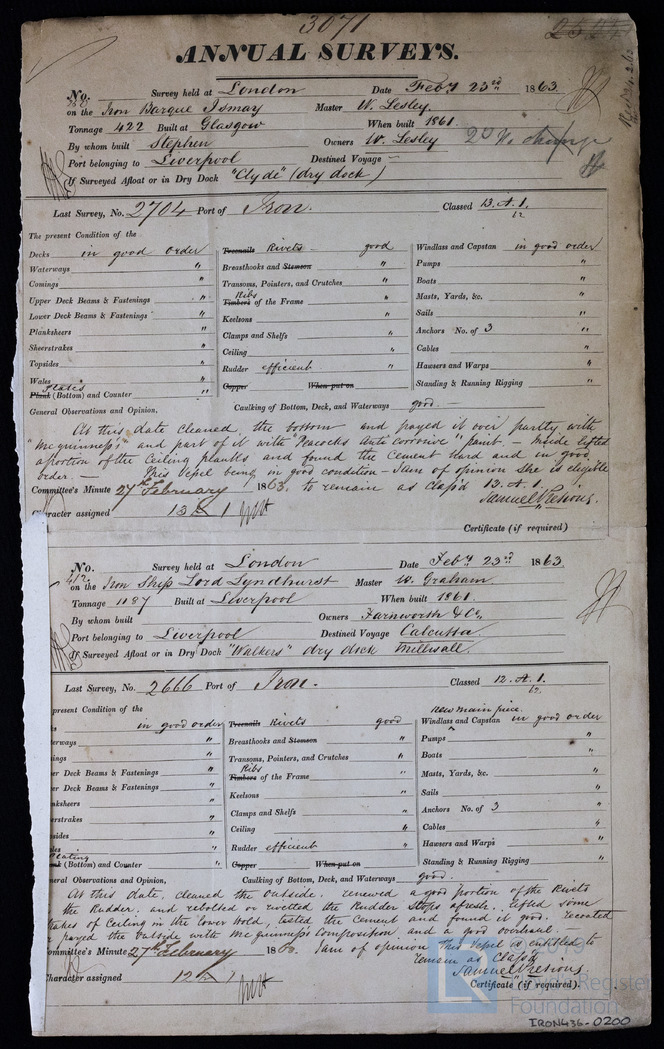 3071
ANNUAL SURVEYS.
No. Survey held at London Date Feby 23rd 1863
on the Iron Barque Ismay Master W. Lesley.
Tonnage 422 Built at Glasgow When built 1861.
By whom built Stephen Owners W. Lesley
Port belonging to Liverpool Destined Voyage —
If Surveyed Afloat or in Dry Dock "Clyde" (dry dock)
Last Survey, No. 2704 Port of Iron. Classed 13. A. 1.
12
The present Condition of the
Decks in good order Treenails Rivets good Windlass and Capstan in good order
Waterways " Breasthooks and Stemson " Pumps "
Comings " Transoms, Pointers, and Crutches " Boats "
Upper Deck Beams & Fastenings " Ribs Timbers of the Frame " Masts, Yards, &c. "
Lower Deck Beams & Fastenings " Keelsons " Sails "
Planksheers " Clamps and Shelfs " Anchors No. of 3 "
Sheerstrakes " Ceiling " Cables "
Topsides " Rudder efficient " Hawsers and Warps "
Wales " Copper When put on Standing & Running Rigging "
Plates Plank (Bottom) and Counter "
General Observations and Opinion, Caulking of Bottom, Deck, and Waterways good. —
At this date cleaned the bottom and payed it over partly with
"McGuinness's" and part of it with "Peacocks Anti corrosive" paint — Inside lifted
a portion of the Ceiling planks and found the Cement hard and in good
order. — This Vessel being in good condition — I am of opinion She is eligible
Committee's Minute 27th February 1863. to remain as Class'd 13. A. 1.
Samuel Pretious.
Character assigned 13 A 1
Certificate (if required)
No. Survey held at London Date Feby 23rd 1863
412
on the Iron Ship Lord Lyndhurst Master W. Graham.
Tonnage 1187 Built at Liverpool When built 1861.
By whom built Owners Farnworth & Co,,
Port belonging to Liverpool Destined Voyage Calcutta.
If Surveyed Afloat or in Dry Dock "Walkers" dry dock Millwall.
Last Survey, No. 2666 Port of Iron. Classed 12. A. 1.
12.
present Condition of the new main piece.
in good order Treenails Rivets good Windlass and Capstan in good order
erways " Breasthooks and Stemson " Pumps "
ings " Transoms, Pointers, and Crutches " Boats "
er Deck Beams & Fastenings " Ribs Timbers of the Frame " Masts, Yards, &c. "
er Deck Beams & Fastenings " Keelsons " Sails "
nksheers " Clamps and Shelfs " Anchors No. of 3 "
erstrakes " Ceiling " Cables "
sides " Rudder efficient " Hawsers and Warps "
les " Copper When put on Standing & Running Rigging "
ating nk (Bottom) and Counter "
eral Observations and Opinion, Caulking of Bottom, Deck, and Waterways good.
At this date, cleaned the outside. renewed a good portion of the Rivets
the Rudder, and rebolted or rivetted the Rudder Stops afresh. lifted some
rakes of Ceiling in the lower Hold, tested the Cement and found it good. recoated
payed the outside with McGuinness Composition and a good overhaul.
ommittee's Minute 27th February 186 . I am of opinion this Vessel is entitled to
remain as Class'd
Samuel Pretious.
Character assigned 12 A 1
Certificate (if required).
LR
2019
Register
Foundation
IRON436-0200